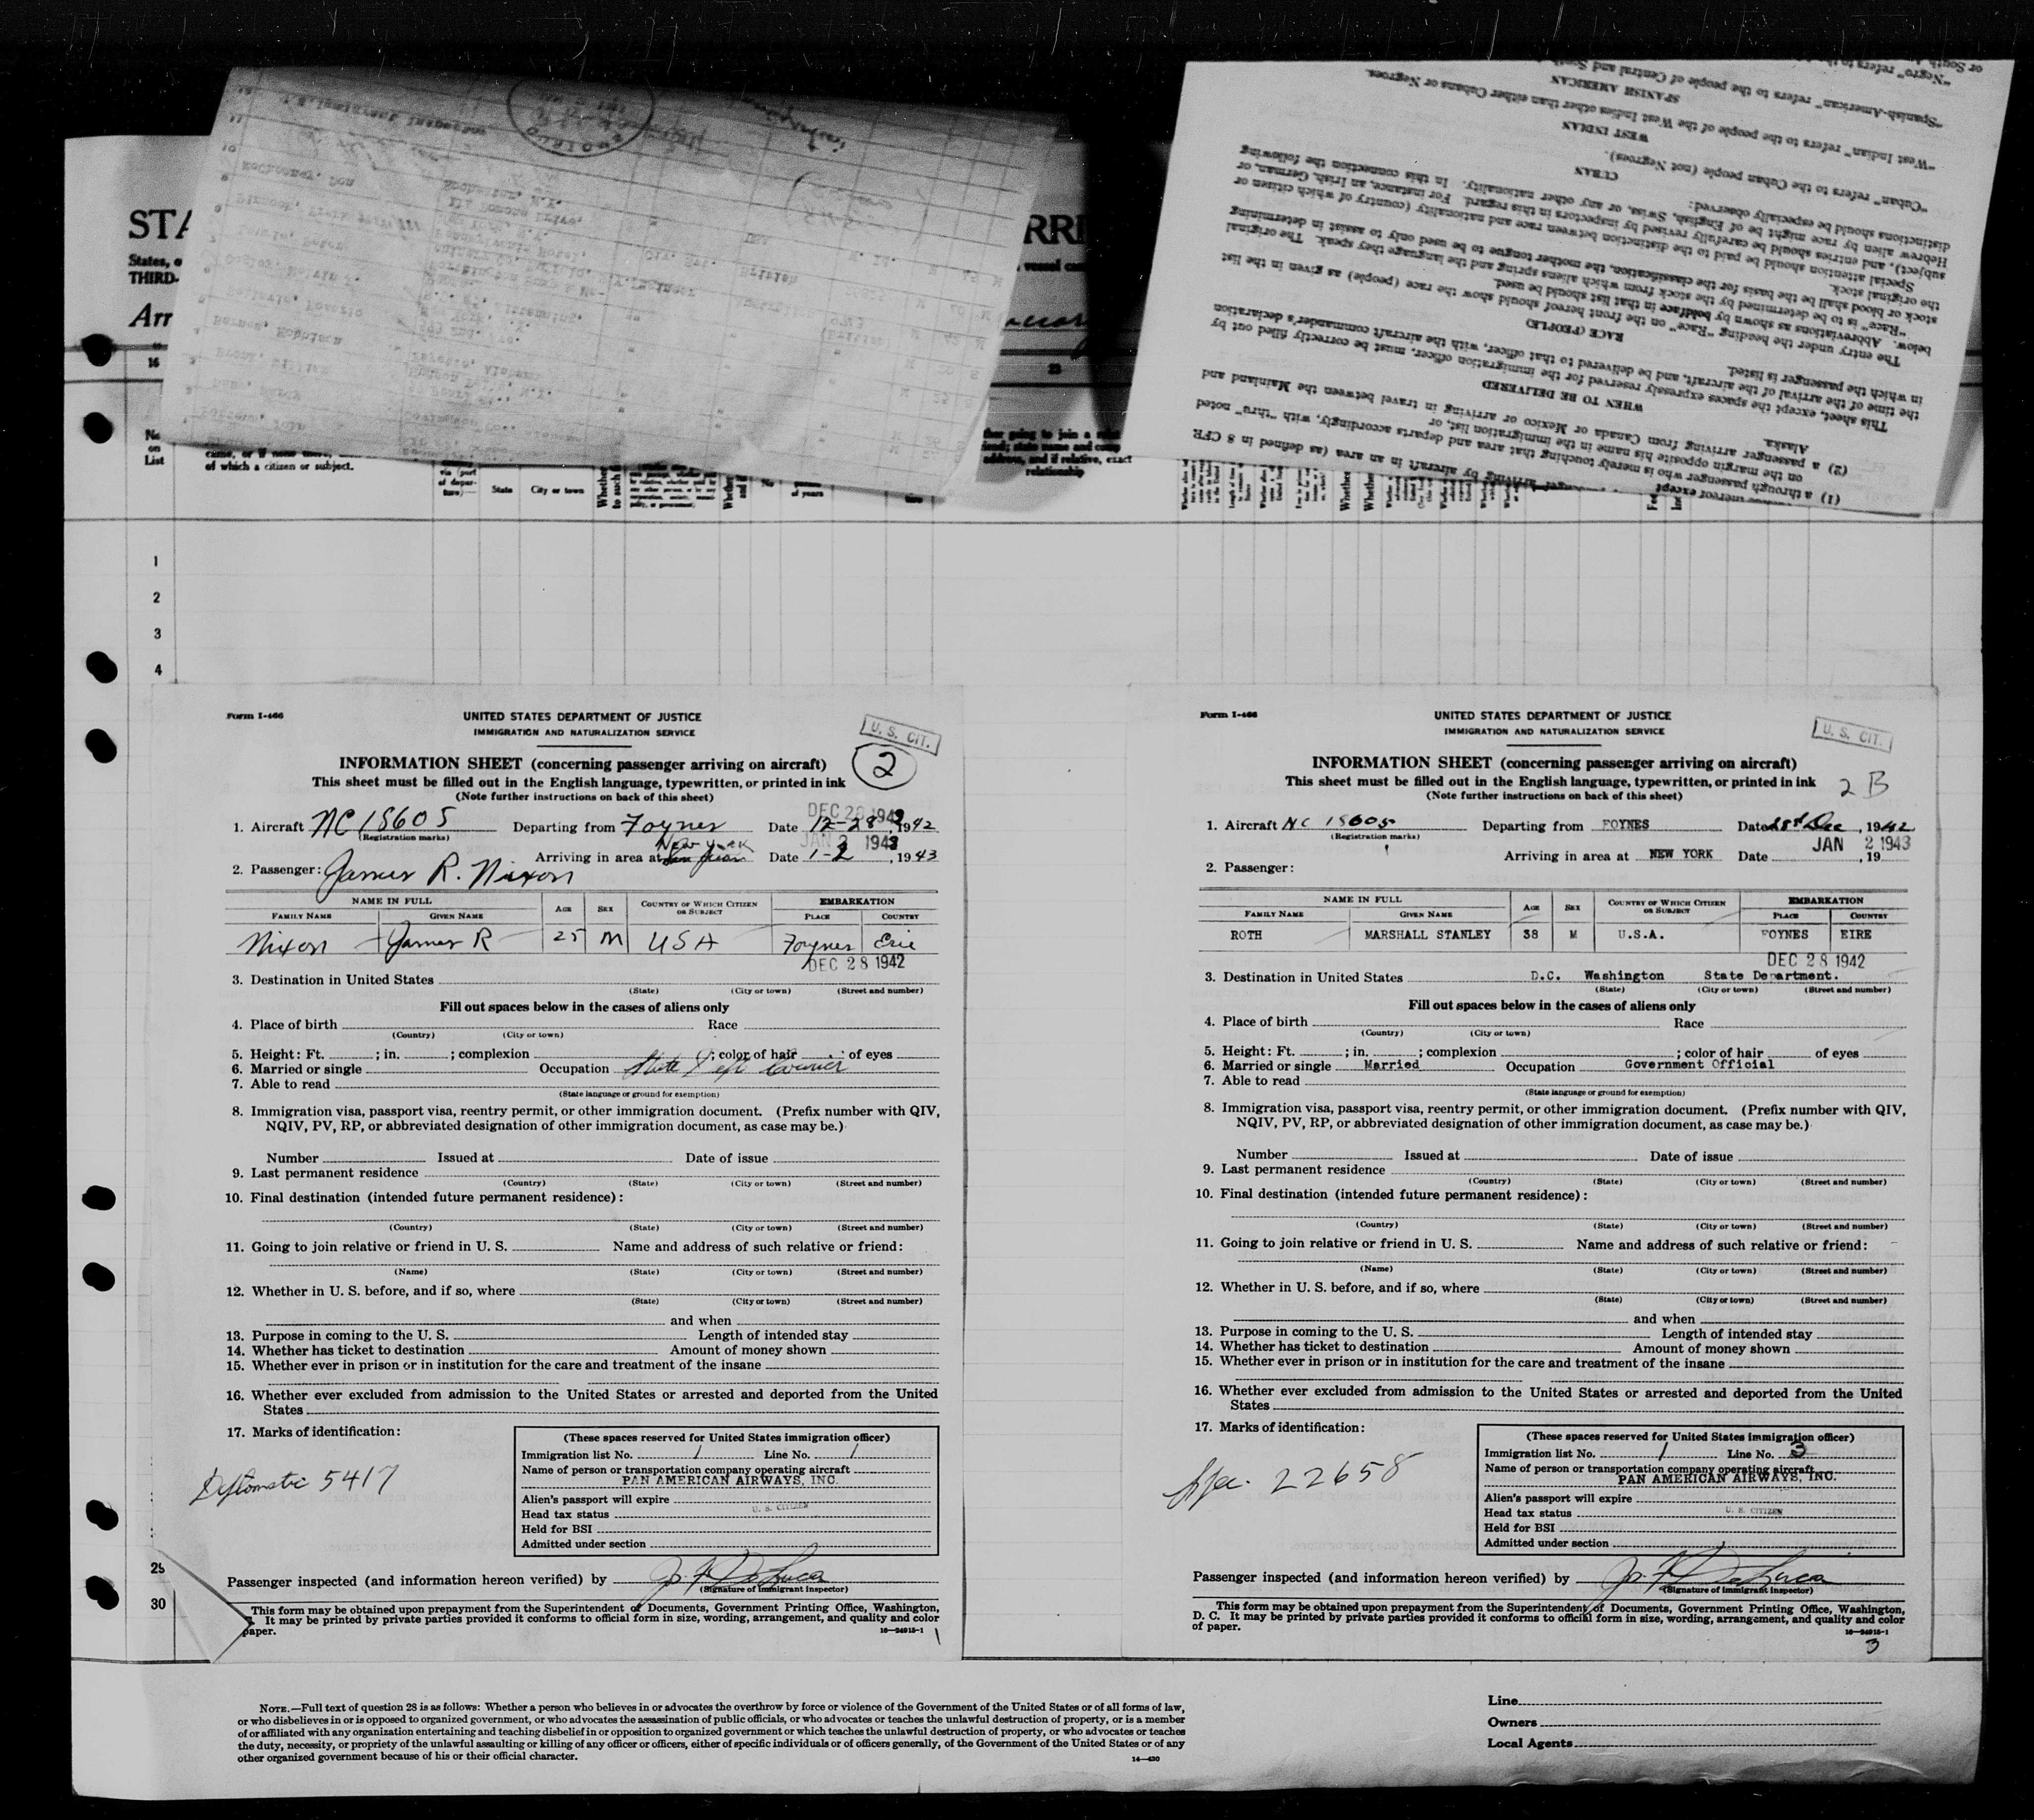 STA
RRI
States, o
THIRD-
Arr
vessel
16
23
No
on
List
of which a citizen or subject.
State
City or town
ther going to join a
address, and if relative, exact
relationship
1
2
3
4
25
30
U. S. Immigrant Inspector
"Negro" refers to the
"Spanish-American" refers to the people of Central and South
SPANISH AMERICAN
"West Indian" refers to the people of the West Indies other than either Cubans or Negroes.
WEST INDIAN
"Cuban" refers to the Cuban people (not Negroes).
CUBAN
distinctions should be especially observed:
Hebrew alien by race might be of English, Swiss, or any other nationality. In this connection the following
subject), and entries should be carefully revised by inspectors in this regard. For instance, an Irish, German, or
Special attention should be paid to the distinction between race and nationality (country of which citizen or
the original stock.
stock or blood shall be the basis for the classification, the mother tongue to be used only to assist in determining
"Race" is to be determined by the stock from which aliens spring and the language they speak. The original
below. Abbreviations as shown by boldface in that list should be used.
The entry under the heading "Race" on the front hereof should show the race (people) as given in the list
RACE (PEOPLE)
in which the passenger is listed.
the time of the arrival of the aircraft, and be delivered to that officer, with the aircraft commander's declaration
This sheet, except the spaces expressly reserved for the immigration officer, must be correctly filled out by
WHEN TO BE DELIVERED
Alaska.
(2) a passenger arriving from Canada or Mexico or arriving in travel between the Mainland and
on the margin opposite his name in the immigration list, or
(1) a through passenger who is merely touching that area and departs accordingly, with "thru" noted
arriving by aircraft in an area (as defined in 8 CFR
Form I-466
UNITED STATES DEPARTMENT OF JUSTICE
IMMIGRATION AND NATURALIZATION SERVICE
U. S. CIT.
2
INFORMATION SHEET (concerning passenger arriving on aircraft)
This sheet must be filled out in the English language, typewritten, or printed in ink
(Note further instructions on back of this sheet)
DEC 28 1942
1. Aircraft NC 18605 Departing from Foynes Date 12-28, 1942
(Registration marks)
JAN 2 1943
New York
Arriving in area at San Juan Date 1-2, 1943
2. Passenger: James R. Nixon
NAME IN FULL AGE SEX COUNTRY OF WHICH CITIZEN OR SUBJECT EMBARKATION
FAMILY NAME GIVEN NAME PLACE COUNTRY
Nixon James R 25 M USA Foynes Erie
DEC 28 1942
3. Destination in United States
(State) (City or town) (Street and number)
Fill out spaces below in the cases of aliens only
4. Place of birth Race
(Country) (City or town)
5. Height: Ft. ; in. ; complexion ; color of hair ; of eyes
6. Married or single Occupation State Dept Courier
7. Able to read
(State language or ground for exemption)
8. Immigration visa, passport visa, reentry permit, or other immigration document. (Prefix number with QIV,
NQIV, PV, RP, or abbreviated designation of other immigration document, as case may be.)
Number Issued at Date of issue
9. Last permanent residence
(Country) (State) (City or town) (Street and number)
10. Final destination (intended future permanent residence):
(Country) (State) (City or town) (Street and number)
11. Going to join relative or friend in U. S. Name and address of such relative or friend:
(Name) (State) (City or town) (Street and number)
12. Whether in U. S. before, and if so, where
(State) (City or town) (Street and number)
and when
13. Purpose in coming to the U. S. Length of intended stay
14. Whether has ticket to destination Amount of money shown
15. Whether ever in prison or in institution for the care and treatment of the insane
16. Whether ever excluded from admission to the United States or arrested and deported from the United
States
17. Marks of identification:
Diplomatic 5417
(These spaces reserved for United States immigration officer)
Immigration list No. 1 Line No. 1
Name of person or transportation company operating aircraft
PAN AMERICAN AIRWAYS, INC.
Alien's passport will expire
U. S. CITIZEN
Head tax status
Held for BSI
Admitted under section
Passenger inspected (and information hereon verified) by
(Signature of immigrant inspector)
This form may be obtained upon prepayment from the Superintendent of Documents, Government Printing Office, Washington,
It may be printed by private parties provided it conforms to official form in size, wording, arrangement, and quality and color
paper.
16—24915-1
1
Form I-466
UNITED STATES DEPARTMENT OF JUSTICE
IMMIGRATION AND NATURALIZATION SERVICE
U. S. CIT.
INFORMATION SHEET (concerning passenger arriving on aircraft)
This sheet must be filled out in the English language, typewritten, or printed in ink
2 B
(Note further instructions on back of this sheet)
1. Aircraft NC 18605 Departing from FOYNES Date 28th Dec, 1942
(Registration marks)
JAN 2 1943
Arriving in area at NEW YORK Date , 19
2. Passenger:
NAME IN FULL AGE SEX COUNTRY OF WHICH CITIZEN OR SUBJECT EMBARKATION
FAMILY NAME GIVEN NAME PLACE COUNTRY
ROTH MARSHALL STANLEY 38 M U.S.A. FOYNES EIRE
DEC 28 1942
3. Destination in United States D.C. Washington State Department.
(State) (City or town) (Street and number)
Fill out spaces below in the cases of aliens only
4. Place of birth Race
(Country) (City or town)
5. Height: Ft. ; in. ; complexion ; color of hair of eyes
6. Married or single Married Occupation Government Official
7. Able to read
(State language or ground for exemption)
8. Immigration visa, passport visa, reentry permit, or other immigration document. (Prefix number with QIV,
NQIV, PV, RP, or abbreviated designation of other immigration document, as case may be.)
Number Issued at Date of issue
9. Last permanent residence
(Country) (State) (City or town) (Street and number)
10. Final destination (intended future permanent residence):
(Country) (State) (City or town) (Street and number)
11. Going to join relative or friend in U. S. Name and address of such relative or friend:
(Name) (State) (City or town) (Street and number)
12. Whether in U. S. before, and if so, where
(State) (City or town) (Street and number)
and when
13. Purpose in coming to the U. S. Length of intended stay
14. Whether has ticket to destination Amount of money shown
15. Whether ever in prison or in institution for the care and treatment of the insane
16. Whether ever excluded from admission to the United States or arrested and deported from the United
States
17. Marks of identification:
Spec. 22658
(These spaces reserved for United States immigration officer)
Immigration list No. 1 Line No. 3
Name of person or transportation company operating aircraft
PAN AMERICAN AIRWAYS, INC.
Alien's passport will expire
U. S. CITIZEN
Head tax status
Held for BSI
Admitted under section
Passenger inspected (and information hereon verified) by
(Signature of immigrant inspector)
This form may be obtained upon prepayment from the Superintendent of Documents, Government Printing Office, Washington,
D. C. It may be printed by private parties provided it conforms to official form in size, wording, arrangement, and quality and color
of paper.
16—24915-1
3
NOTE.—Full text of question 28 is as follows: Whether a person who believes in or advocates the overthrow by force or violence of the Government of the United States or of all forms of law,
or who disbelieves in or is opposed to organized government, or who advocates the assassination of public officials, or who advocates or teaches the unlawful destruction of property, or is a member
of or affiliated with any organization entertaining and teaching disbelief in or opposition to organized government or which teaches the unlawful destruction of property, or who advocates or teaches
the duty, necessity, or propriety of the unlawful assaulting or killing of any officer or officers, either of specific individuals or of officers generally, of the Government of the United States or of any
other organized government because of his or their official character.
14—430
Line
Owners
Local Agents